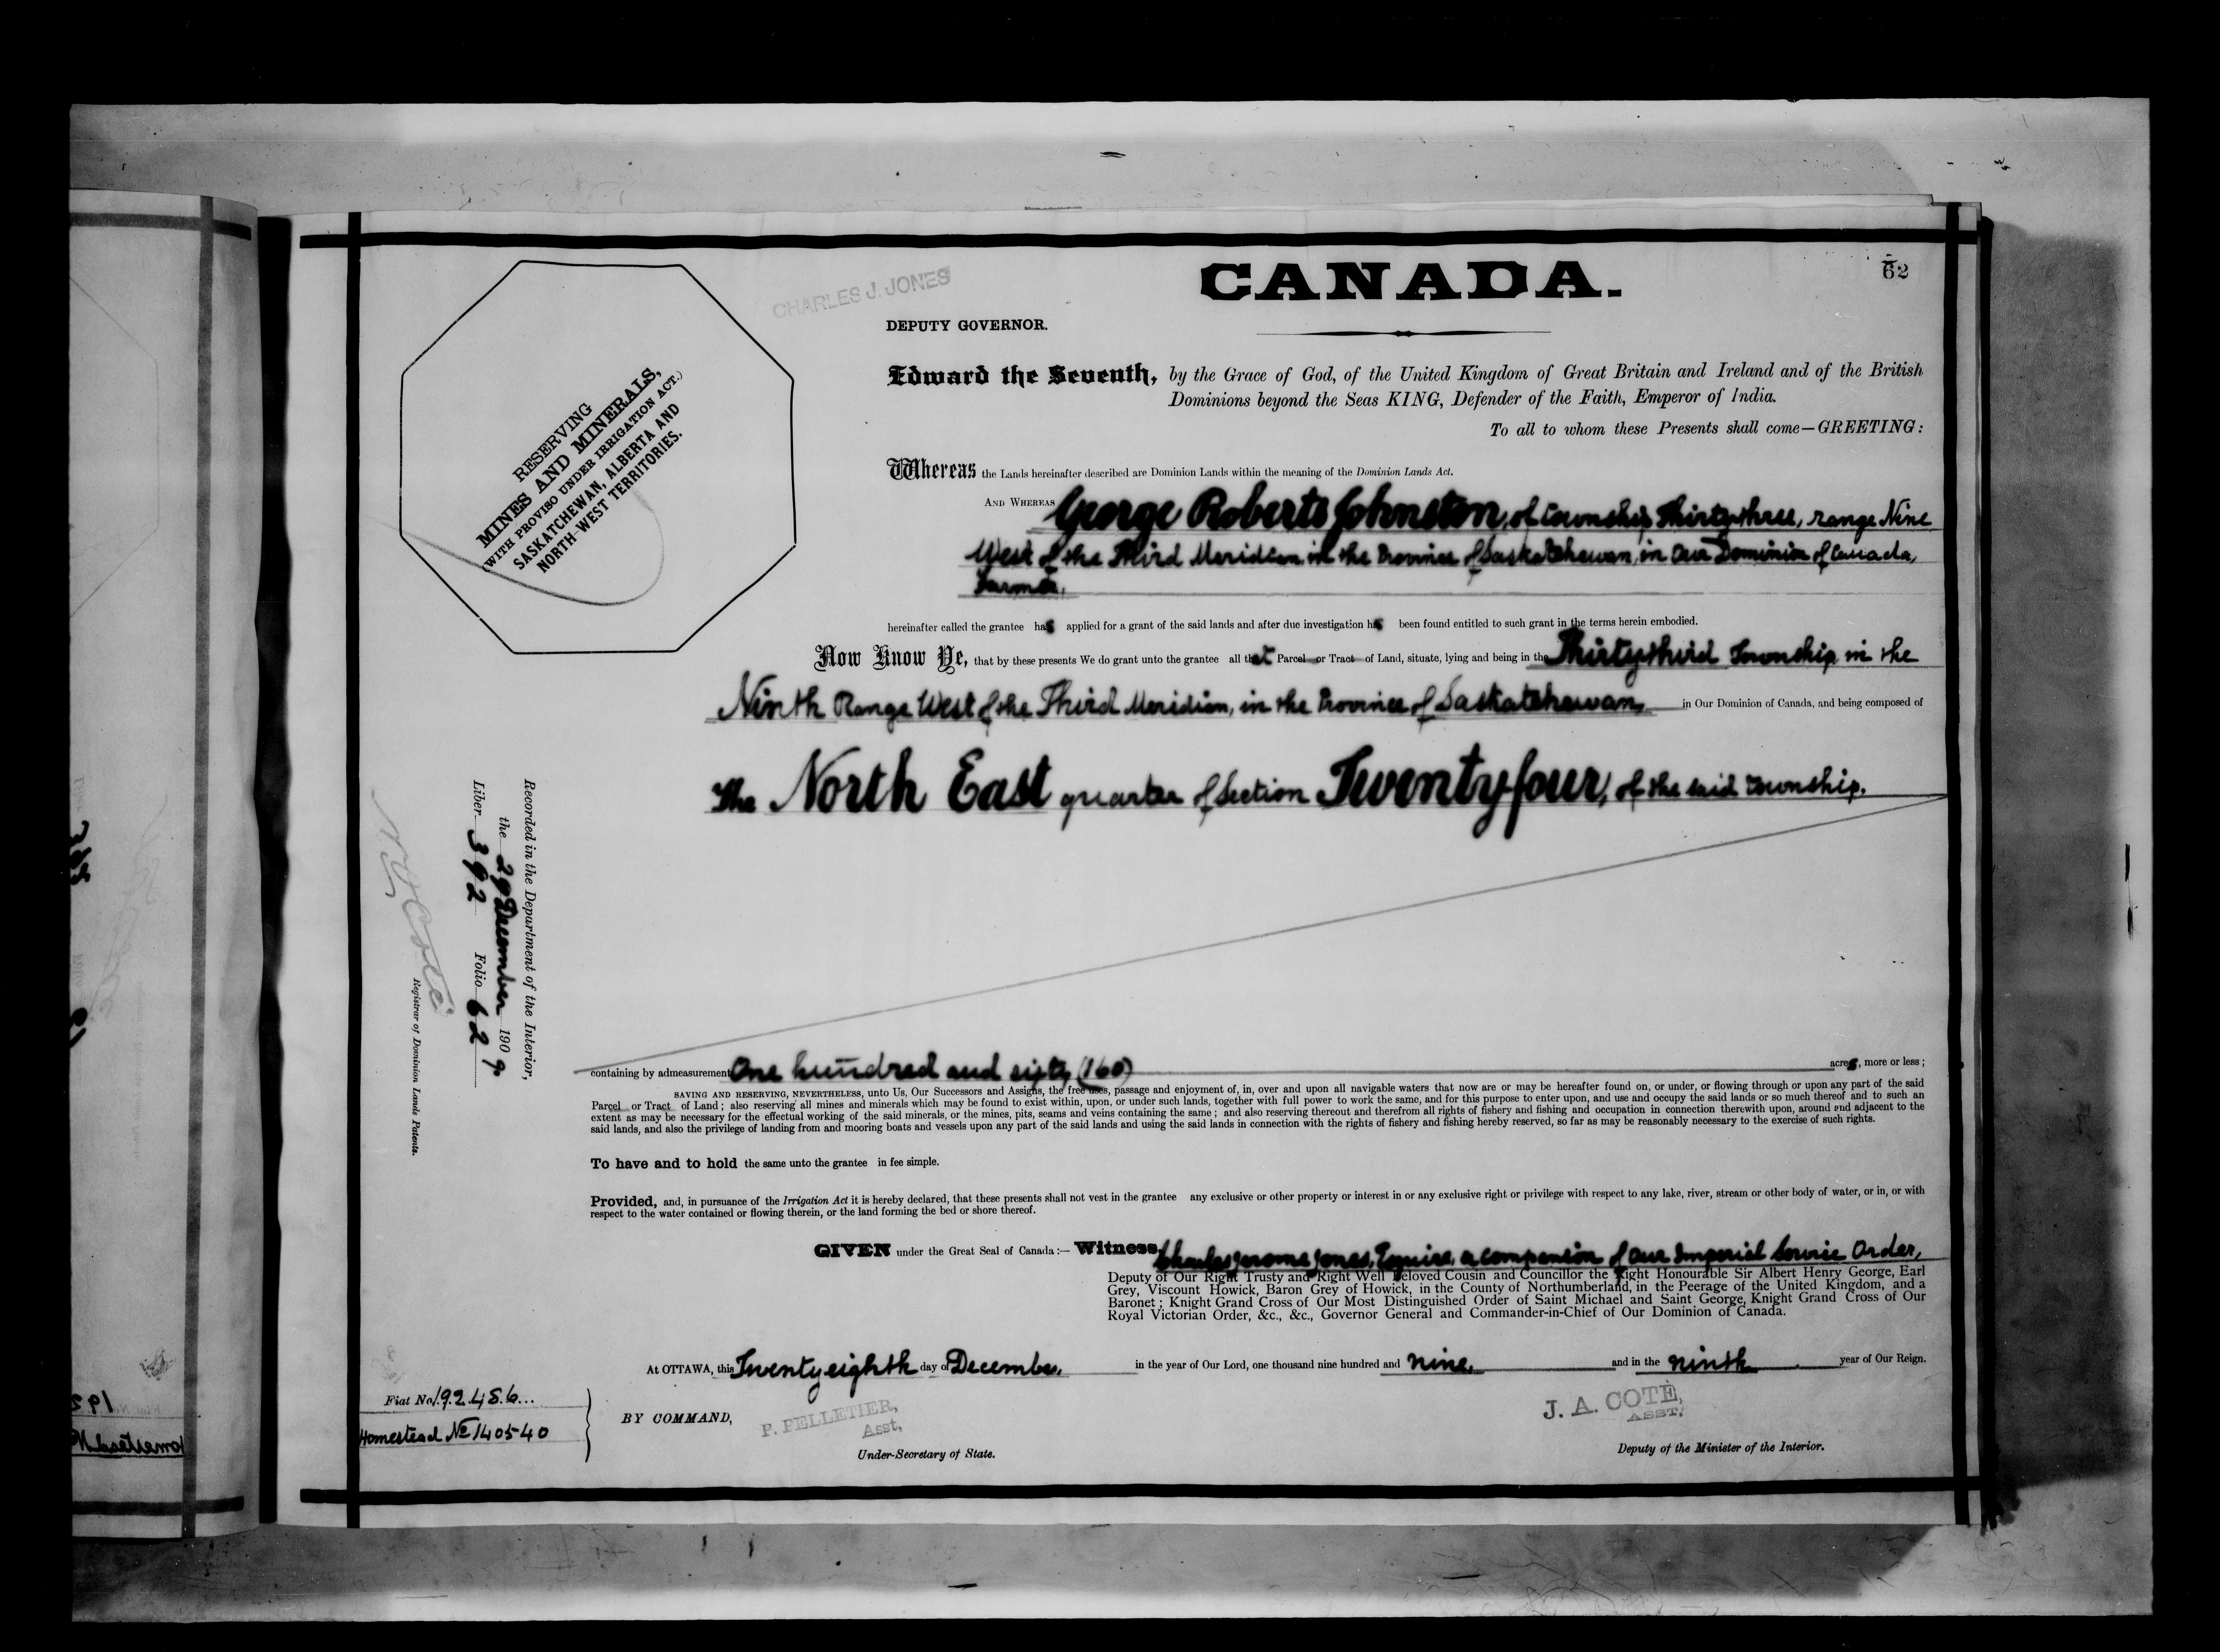 CANADA.
62
CHARLES J. JONES
DEPUTY GOVERNOR.
RESERVING
MINES AND MINERALS,
(WITH PROVISO UNDER IRRIGATION ACT.)
SASKATCHEWAN, ALBERTA AND
NORTH-WEST TERRITORIES.
Edward the Seventh, by the Grace of God, of the United Kingdom of Great Britain and Ireland and of the British
Dominions beyond the Seas KING, Defender of the Faith, Emperor of India.
To all to whom these Presents shall come—GREETING:
Whereas the Lands hereinafter described are Dominion Lands within the meaning of the Dominion Lands Act.
AND WHEREAS George Roberts Johnston, of township Thirty three, range Nine
West of the Third Meridian, in the Province of Saskatchewan, in Our Dominion of Canada,
Farmer.
hereinafter called the grantee has applied for a grant of the said lands and after due investigation has been found entitled to such grant in the terms herein embodied.
Now Know Ye, that by these presents We do grant unto the grantee all that Parcel or Tract of Land, situate, lying and being in the Thirty third Township in the
Ninth Range West of the Third Meridian, in the Province of Saskatchewan, in Our Dominion of Canada, and being composed of
The North East quarter of Section Twenty four, of the said township.
Recorded in the Department of the Interior,
the 29 December 1909
Liber 392 Folio 62
N O Coté
Registrar of Dominion Lands Patents.
containing by admeasurement One hundred and sixty (160) acres, more or less;
SAVING AND RESERVING, NEVERTHELESS, unto Us, Our Successors and Assigns, the free uses, passage and enjoyment of, in, over and upon all navigable waters that now are or may be hereafter found on, or under, or flowing through or upon any part of the said
Parcel or Tract of Land; also reserving all mines and minerals which may be found to exist within, upon, or under such lands, together with full power to work the same, and for this purpose to enter upon, and use and occupy the said lands or so much thereof and to such an
extent as may be necessary for the effectual working of the said minerals, or the mines, pits, seams and veins containing the same; and also reserving thereout and therefrom all rights of fishery and fishing and occupation in connection therewith upon, around and adjacent to the
said lands, and also the privilege of landing from and mooring boats and vessels upon any part of the said lands and using the said lands in connection with the rights of fishery and fishing hereby reserved, so far as may be reasonably necessary to the exercise of such rights.
To have and to hold the same unto the grantee in fee simple.
Provided, and, in pursuance of the Irrigation Act it is hereby declared, that these presents shall not vest in the grantee any exclusive or other property or interest in or any exclusive right or privilege with respect to any lake, river, stream or other body of water, or in, or with
respect to the water contained or flowing therein, or the land forming the bed or shore thereof.
GIVEN under the Great Seal of Canada:— Witness, Charles Jerome Jones, Esquire, a companion of Our Imperial Service Order,
Deputy of Our Right Trusty and Right Well Beloved Cousin and Councillor the Right Honourable Sir Albert Henry George, Earl
Grey, Viscount Howick, Baron Grey of Howick, in the County of Northumberland, in the Peerage of the United Kingdom, and a
Baronet; Knight Grand Cross of Our Most Distinguished Order of Saint Michael and Saint George, Knight Grand Cross of Our
Royal Victorian Order, &c., &c., Governor General and Commander-in-Chief of Our Dominion of Canada.
At OTTAWA, this Twenty eighth day of December, in the year of Our Lord, one thousand nine hundred and nine, and in the ninth year of Our Reign.
Fiat No. 192486
Homestead No 140540
BY COMMAND,
P. PELLETIER,
Asst,
Under-Secretary of State.
J. A. COTÉ,
ASST.
Deputy of the Minister of the Interior.